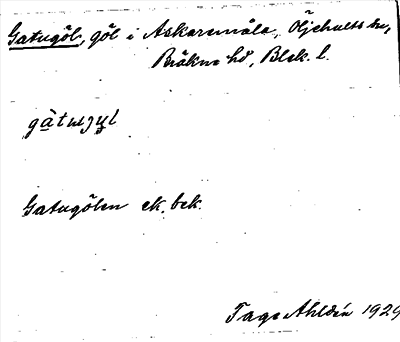 Gatugöl, göl i Askaremåla, Öljehults sn,
Bräkne hd, Blek. l.
gàtuɟyl
Gatugölen ek. bek.
Tage Ahldén 1929